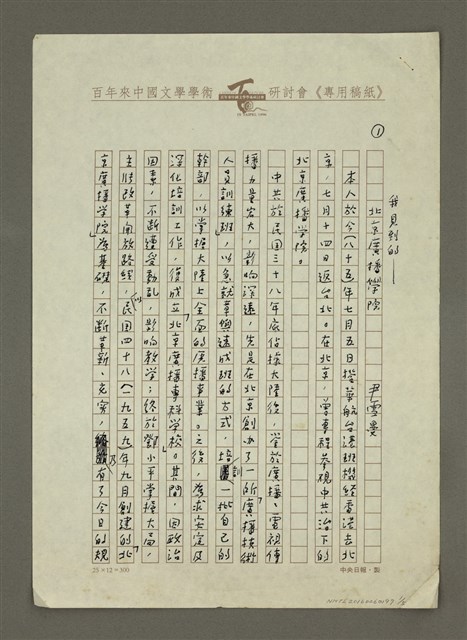 百年來中國文學學術研討會《專用稿紙》
①
我見到的——
北京廣播學院
尹雪曼
本人於今(八十五)年七月五日搭華航台港班機經香港去北
京,七月十四日返台北。在北京,曾專程參視中共治下的
北京廣播學院。
中共於民國三十八年底佔據大陸後,鑒於廣播、電視傳
播力量宏大,影响深遠,先是在北京創办了一所「廣播技術
人員訓練班」,以急就章與速成班的方式,培訓一批自己的
幹部,以掌握大陸上全面的廣播事業。之後,為求安定及
深化培訓工作,復成立「北京廣播專科學校」。其間,因政治
因素,不斷遭受動乱,影响教学;終於鄧小平掌握大局,
主張改革開放路綫,以民国四十八(一九五九)年九月創建的「北
京廣播学院」為基礎,不斷革新、充实,乃有了今日的規
25×12=300
中央日報·製